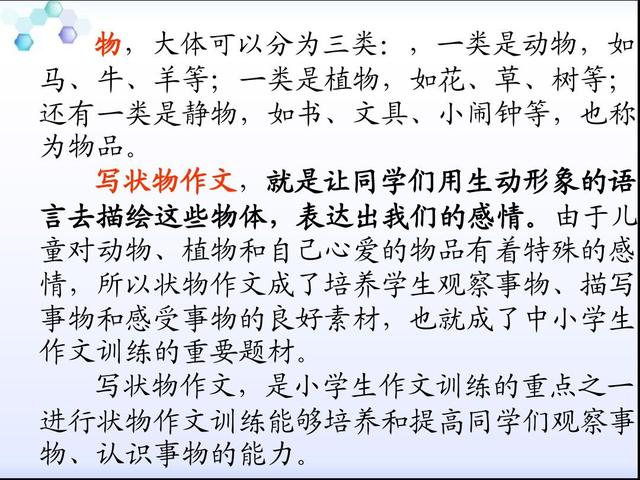 物，大体可以分为三类：，一类是动物，如
马、牛、羊等；一类是植物，如花、草、树等；
还有一类是静物，如书、文具、小闹钟等，也称
为物品。
写状物作文，就是让同学们用生动形象的语
言去描绘这些物体，表达出我们的感情。由于儿
童对动物、植物和自己心爱的物品有着特殊的感
情，所以状物作文成了培养学生观察事物、描写
事物和感受事物的良好素材，也就成了中小学生
作文训练的重要题材。
写状物作文，是小学生作文训练的重点之一
进行状物作文训练能够培养和提高同学们观察事
物、认识事物的能力。